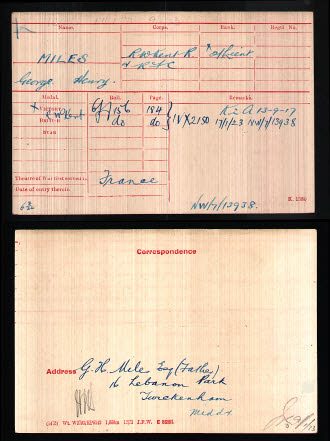 Name. Corps. Rank. Regtl. No.
MILES R. W. Kent R. × Officer
& R.F.C
George Henry.
Medal. Roll. Page. Remarks.
× VICTORY R W Kent O/156 184 K in A 13-9-17
BRITISH do do IV X 2150 17/1/23 NW/7/13938
STAR
Theatre of War first served in France
Date of entry therein
NW/7/13938.
K. 1380
Correspondence
Address G. H. Mile Esq (Father)
16 Lebanon Park
Twickenham
Middx